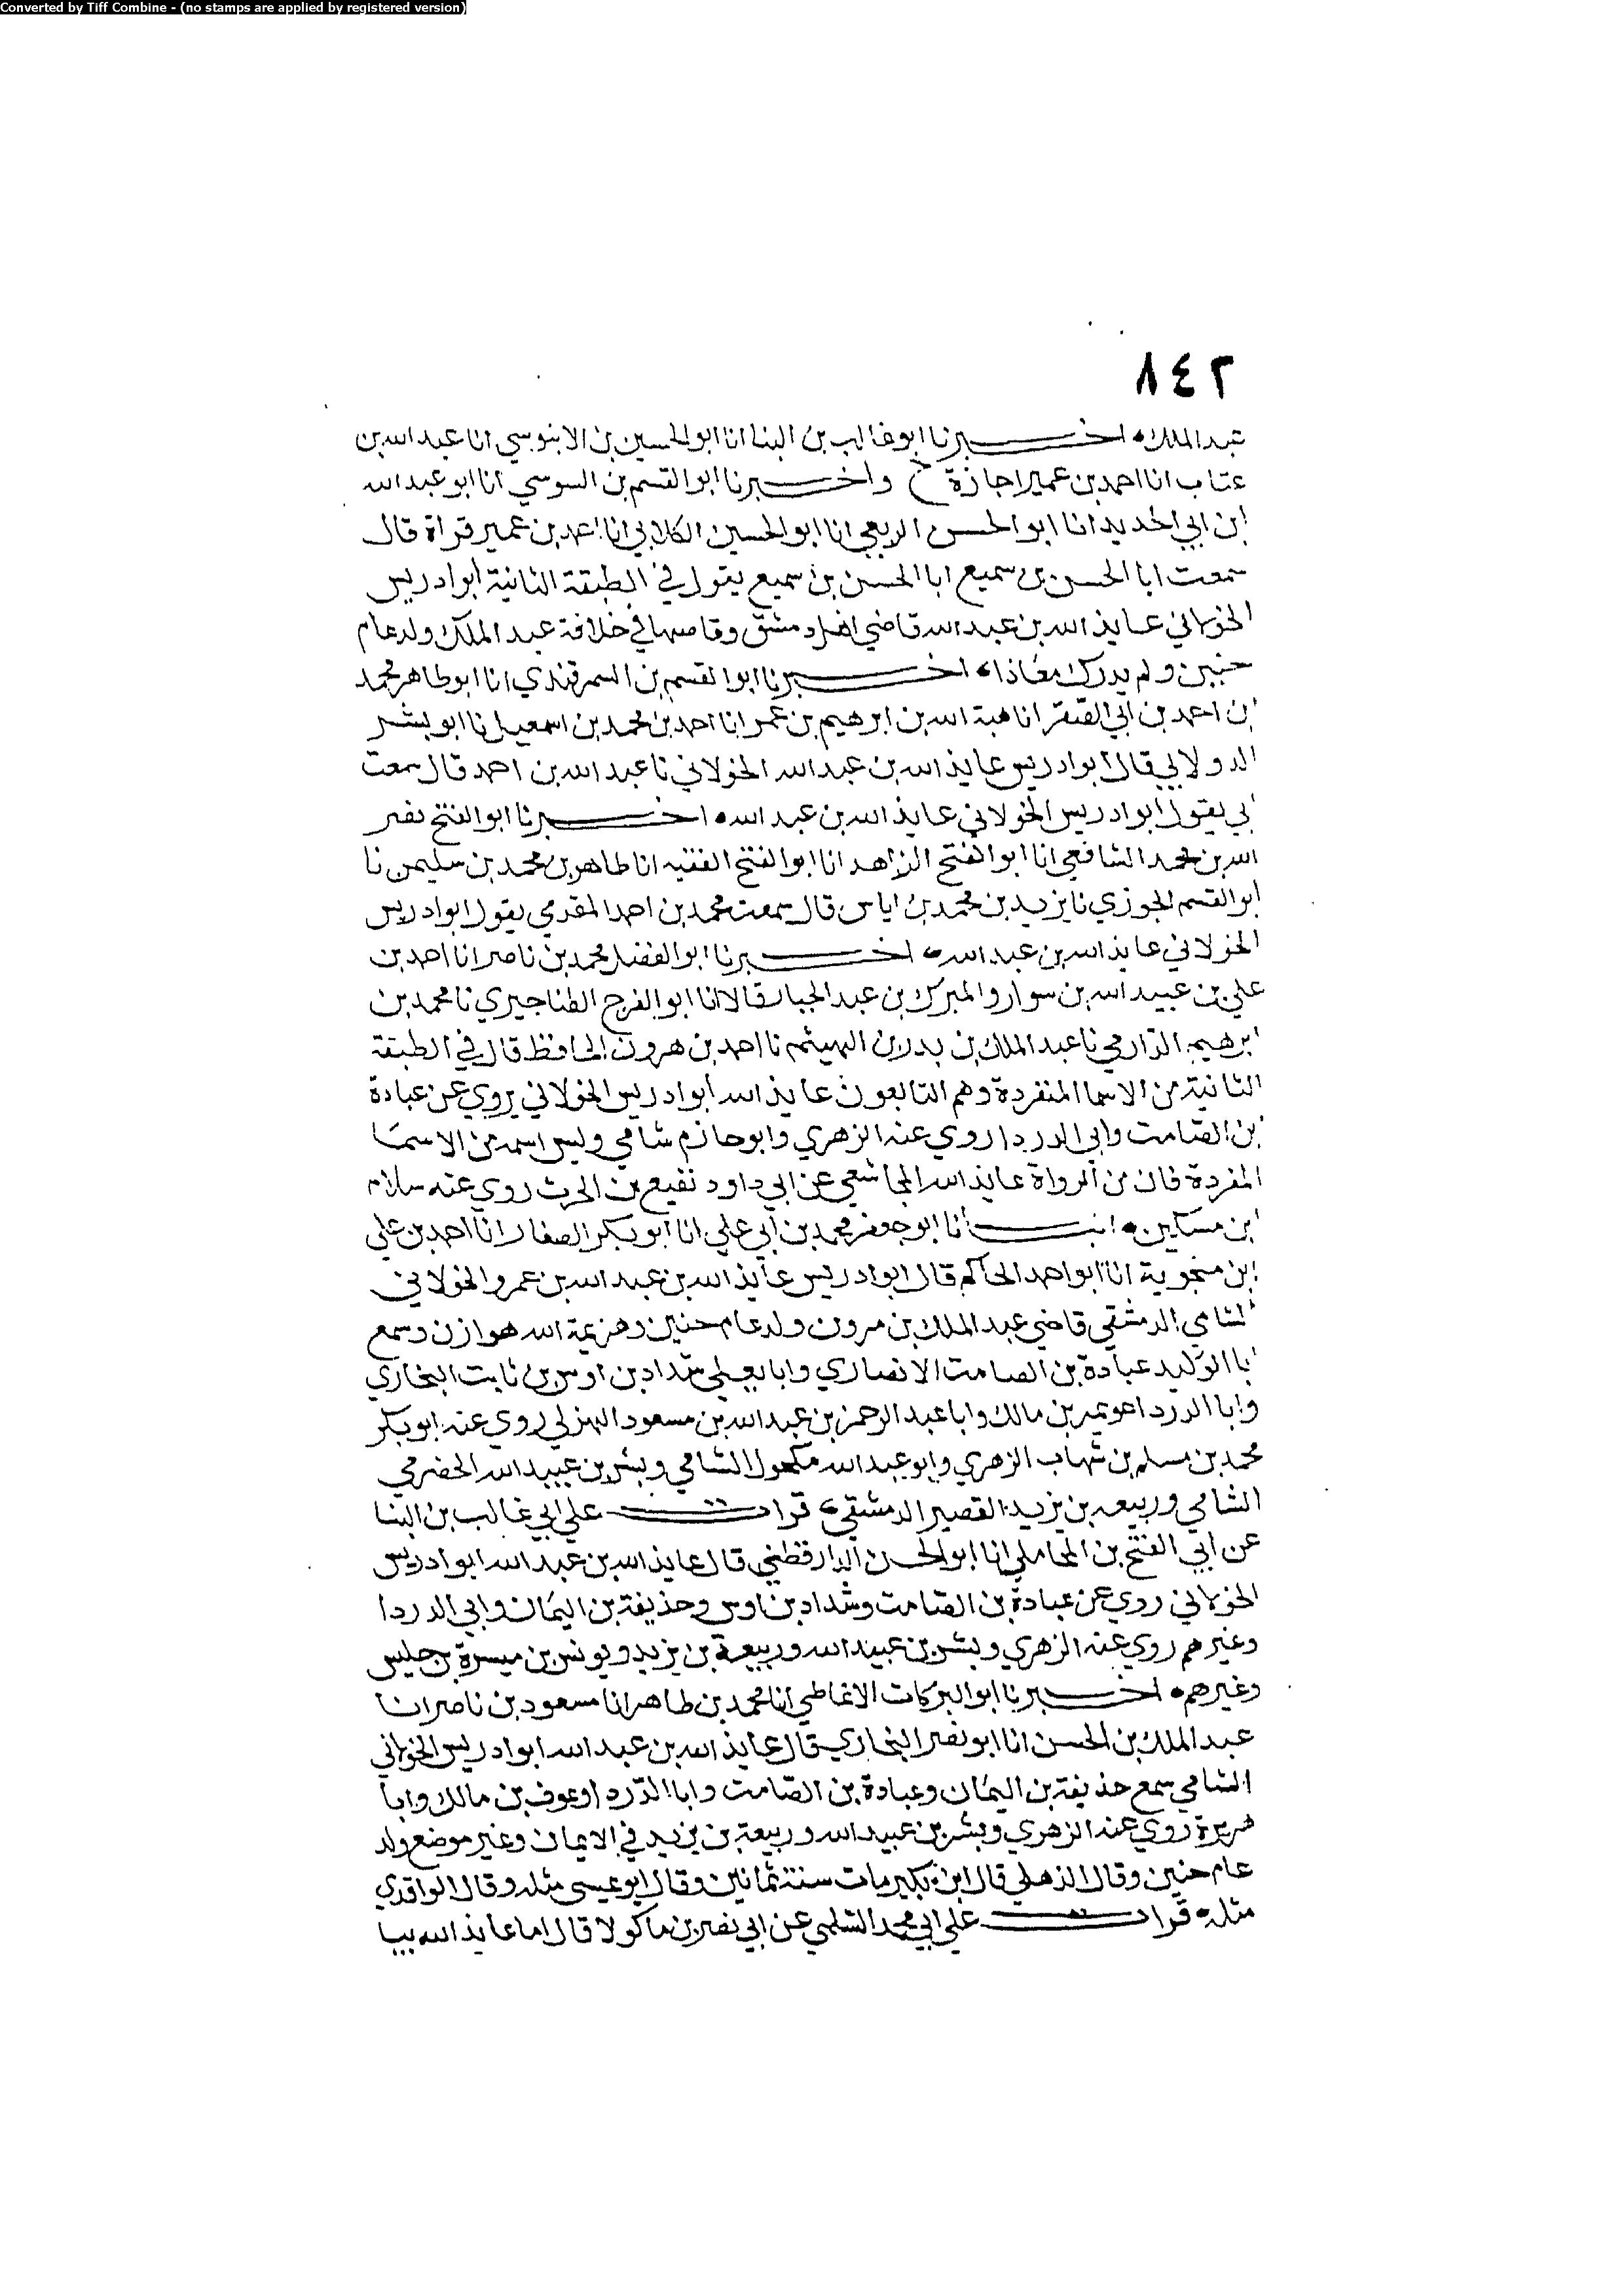 Converted by Tiff Combine - (no stamps are applied by registered version)
٨٤٢
عبد الملك اخبرنا ابو غالب بن البنا انا ابو الحسين بن الابنوسي انا عبد الله بن
عتاب انا احمد بن عمير اجازة ح واخبرنا ابو القسم بن السوسي انا ابو عبد الله
ابن ابي الحديد انا ابو الحسن الربعي انا ابو الحسين الكلابي انا احمد بن عمير قراة قال
سمعت ابا الحسن بن سميع ابا الحسن بن سميع يقول في الطبقة الثانية ابو ادريس
الخولاني عايذ الله بن عبد الله قاضي اهل دمشق وقاصها في خلافة عبد الملك ولد عام
حنين ولم يدرك معاذا اخبرنا ابو القسم بن السمرقندي انا ابو طاهر محمد
بن احمد بن ابي الصقر انا هبة الله بن ابرهيم بن عمر انا احمد بن محمد بن اسمعيل نا ابو بشر
الدولابي قال ابو ادريس عايذ الله بن عبد الله الخولاني نا عبد الله بن احمد قال سمعت
ابي يقول ابو ادريس الخولاني عايذ الله بن عبد الله اخبرنا ابو الفتح نصر
الله بن محمد الشافعي انا ابو الفتح الزاهد انا ابو الفتح الفقيه انا طاهر بن محمد بن سليمن نا
ابو القسم الجوزي نا يزيد بن محمد بن اياس قال سمعت محمد بن احمد المقدمي يقول ابو ادريس
الخولاني عايذ الله بن عبد الله اخبرنا ابو الفضل محمد بن ناصر انا احمد بن
علي بن عبيد الله بن سوار والمبرك بن عبد الجبار قالا انا ابو الفرج الطناجيري نا محمد بن
ابرهيم الدارمي نا عبد الملك بن بدر بن الهيثم نا احمد بن هرون الحافظ قال في الطبقة
الثانية من الاسما المنفردة وهم التابعون عايذ الله ابو ادريس الخولاني يروي عن عبادة
بن الصامت وابي الدردا روي عنه الزهري وابو حازم شامي وليس اسمه من الاسما
المفردة فان من الرواة عايذ الله المجاشعي عن ابي داود نفيع بن الحرث روي عنه سلام
ابن مسكين انبانا ابو جعفر محمد بن ابي علي انا ابو بكر الصفار انا احمد بن علي
ابن منجوية انا ابو احمد الحاكم قال ابو ادريس عايذ الله بن عبد الله بن عمرو الخولاني
الشامي الدمشقي قاضي عبد الملك بن مرون ولد عام حنين وهزيمة الله هوازن وسمع
ابا الوليد عبادة بن الصامت الانصاري وابا يعلى شداد بن اوس بن ثابت البخاري
وابا الدردا عويمر بن مالك وابا عبد الرحمن بن عبد الله بن مسعود الهزلي روي عنه ابو بكر
محمد بن مسلم بن شهاب الزهري وابو عبد الله مكحول الشامي وبشر بن عبيد الله الحضرمي
الشامي وربيعه بن يزيد القصير الدمشقي قرات علي ابي غالب بن البنا
عن ابي الفتح بن المحاملي انا ابو الحسن الدارقطني قال عايذ الله بن عبد الله ابو ادريس
الخولاني روي عن عبادة بن الصامت وشداد بن اوس وحذيفة بن اليمان وابي الدردا
وغيرهم روي عنه الزهري وبشر بن عبيد الله وربيعة بن يزيد ويونس بن ميسرة بن حلبس
وغيرهم اخبرنا ابو البركات الانماطي انا محمد بن طاهر انا مسعود بن ناصر انا
عبد الملك بن الحسن انا ابو نصر البخاري قال عايذ الله بن عبد الله ابو ادريس الخولاني
الشامي سمع حذيفة بن اليمان وعبادة بن الصامت وابا الدردا وعوف بن مالك وابا
هريرة روي عنه الزهري وبشر بن عبيد الله وربيعة بن يزيد في الايمان وغير موضع ولد
عام حنين وقال الذهلي قال ابن بكير مات سنة ثمانين وقال ابو عيسى مثله وقال الواقدي
مثله قرات علي ابي محمد السلمي عن ابي نصر بن ماكولا قال اما عايذ الله بيا